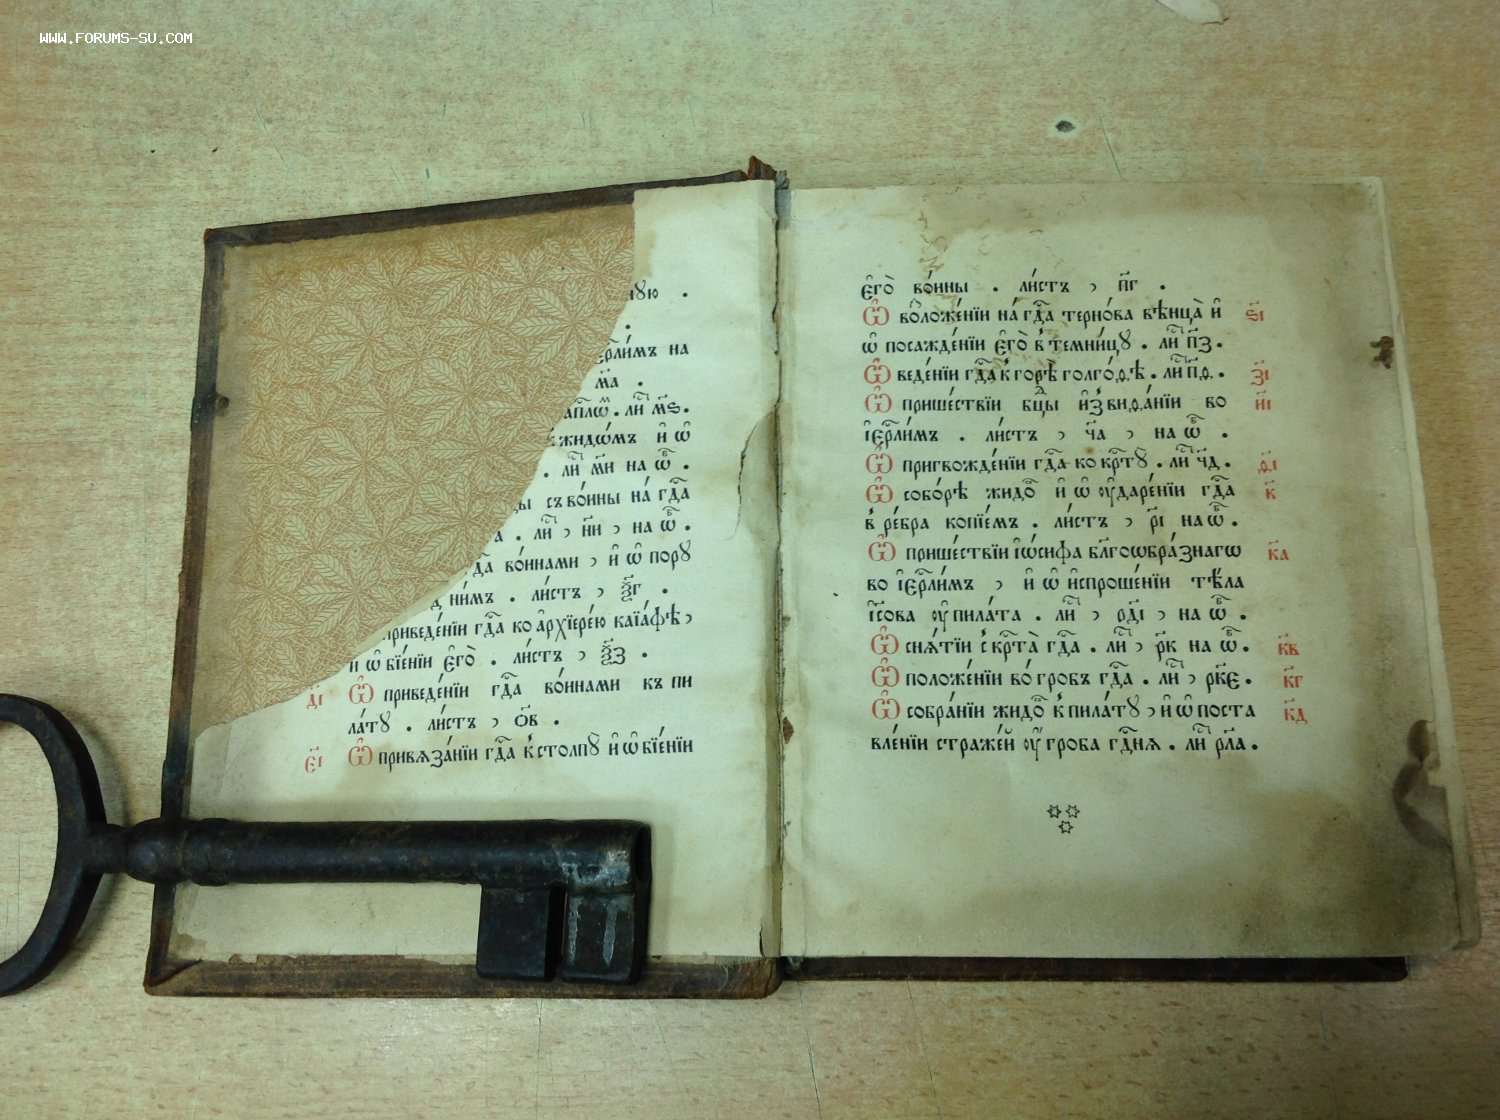 WWW.FORUMS-SU.COM
ую .
.
і҆ерⷭ҇ли́мъ на
м҃а .
а҆пⷭ҇лѡⷨ . лиⷭ҇ м҃ѕ .
жидѡ́мъ и҆ ѡ҆
. лиⷭ҇ м҃и на ѡ҆ⷠ .
съ во́ины на́ гдⷭ҇а
. лиⷭ҇ , н҃и , на ѡ҆ⷠ .
гдⷭ҇а во́инами , и҆ ѡ҆ пору
ни́мъ . ли́стъ , ѯ҃г .
приведе́нїи гдⷭ҇а ко а҆рхїере́ю каїа́фѣ ,
и҆ ѡ҆ бїе́нїи є҆гѡ̀ . ли́стъ , ѯ҃з .
д҃і Ѡ҆ приведе́нїи гдⷭ҇а во́инами къ пи
ла́ту . ли́стъ , ѻ҃в .
є҃і Ѡ҆ привѧза́нїи гдⷭ҇а к̾ столпꙋ̀ и҆ ѡ҆ бїе́нїи
є҆го̀ во́ины . ли́стъ , п҃г .
Ѡ҆ воⷧ҇ложе́нїи на́ гдⷭ҇а терно́ва вѣнца̀ и҆ ѕ҃і
ѡ҆ посажде́нїи є҆го̀ в̾ темни́цꙋ . лиⷭ҇ п҃з .
Ѡ҆ веде́нїи гдⷭ҇а к̾ горѣ̀ голго́ѳѣ . лиⷭ҇ п҃ѳ . з҃і
Ѡ҆ прише́ствїи бцⷣы и҆з̾ виѳа́нїи во и҃і
і҆ерⷭ҇ли́мъ . ли́стъ , ч҃а , на ѡ҆ⷠ .
Ѡ҆ пригвожде́нїи гдⷭ҇а ко крⷭ҇тꙋ̀ . лиⷭ҇ ч҃д . ѳ҃і
Ѡ҆ собо́рѣ жидо́ⷡ и҆ ѡ҆ ᲂу҆даре́нїи гдⷭ҇а к҃
в̾ ре́бра копїе́мъ . ли́стъ , р҃і на ѡ҆ⷠ .
Ѡ҆ прише́ствїи і҆ѡ́сифа бл҃гоѡбра́знагѡ к҃а
во і҆ерⷭ҇ли́мъ , и҆ ѡ҆ и҆спроше́нїи тѣ́ла
і҆с҃ова ᲂу҆ пила́та . лиⷭ҇ , рд҃і , на ѡ҆ⷠ .
Ѡ҆ снѧ́тїи с̾ крⷭ҇та̀ гдⷭ҇а . лиⷭ҇ , р҃к на ѡ҆ⷠ . к҃в
Ѡ҆ положе́нїи во́ гробъ гдⷭ҇а . лиⷭ҇ , рк҃є . к҃г
Ѡ҆ собра́нїи жидо́ⷡ к̾ пила́тꙋ , и҆ ѡ҆ поста к҃д
вле́нїи страже́й ᲂу҆ гроба гдⷭ҇нѧ . лиⷭ҇ рл҃а .